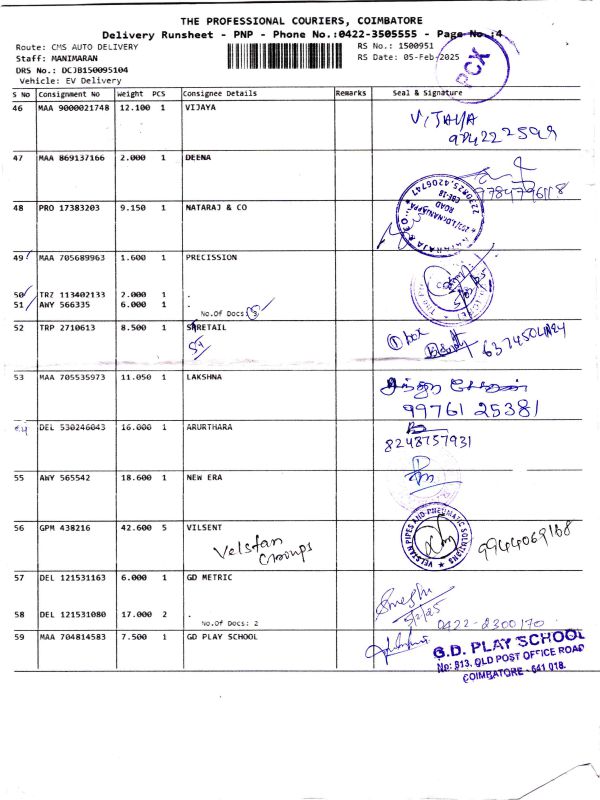 THE PROFESSIONAL COURIERS, COIMBATORE
Delivery Runsheet - PNP - Phone No.:0422-3505555 - Page No.:4
Route: CMS AUTO DELIVERY
RS No.: 1500951
Staff: MANIMARAN
RS Date: 05-Feb-2025
DRS No.: DCJB150095104
Vehicle: EV Delivery
PCX
S No Consignment No Weight PCS Consignee Details Remarks Seal & Signature
46 MAA 9000021748 12.100 1 VIJAYA
VIJAYA
47 MAA 869137166 2.000 1 DEENA
9784796118
48 PRO 17383203 9.150 1 NATARAJ & CO
49 MAA 705689963 1.600 1 PRECISSION
5/2/25
50 TRZ 113402133 2.000 1 .
51 AWY 566335 6.000 1 .
No.Of Docs: 3
52 TRP 2710613 8.500 1 SRETAIL
① box
53 MAA 705535973 11.050 1 LAKSHNA
99761 25381
54 DEL 530246043 16.000 1 ARURTHARA
8248757931
55 AWY 565542 18.600 1 NEW ERA
56 GPM 438216 42.600 5 VILSENT
Velstan
Groups
VELSTAN PIPES AND PNEUMATIC SOLUTIONS
9944069168
57 DEL 121531163 6.000 1 GD METRIC
5/2/25
58 DEL 121531080 17.000 2 .
No.Of Docs: 2
0422-2300170
59 MAA 704814583 7.500 1 GD PLAY SCHOOL
G.D. PLAY SCHOOL
No: 813, OLD POST OFFICE ROAD
COIMBATORE - 641 018.